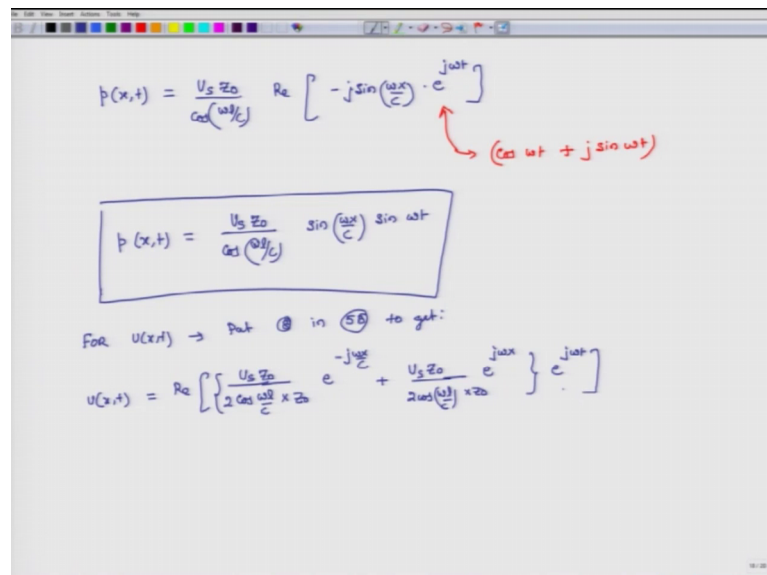 File Edit View Insert Actions Tools Help
p(x,t) = U_S Z_0 / cos(ωl/c) Re [ -j sin(ωx/c) · e^{jωt} ]
(cos ωt + j sin ωt)
p(x,t) = U_S Z_0 / cos(ωl/c) sin(ωx/c) sin ωt
FOR U(x,t) → Put in 5B to get:
U(x,t) = Re [ { U_S Z_0 / 2 cos ωl/c × Z_0 e^{-jωx/c} + U_S Z_0 / 2 cos(ωl/c) × Z_0 e^{jωx} } e^{jωt} ]